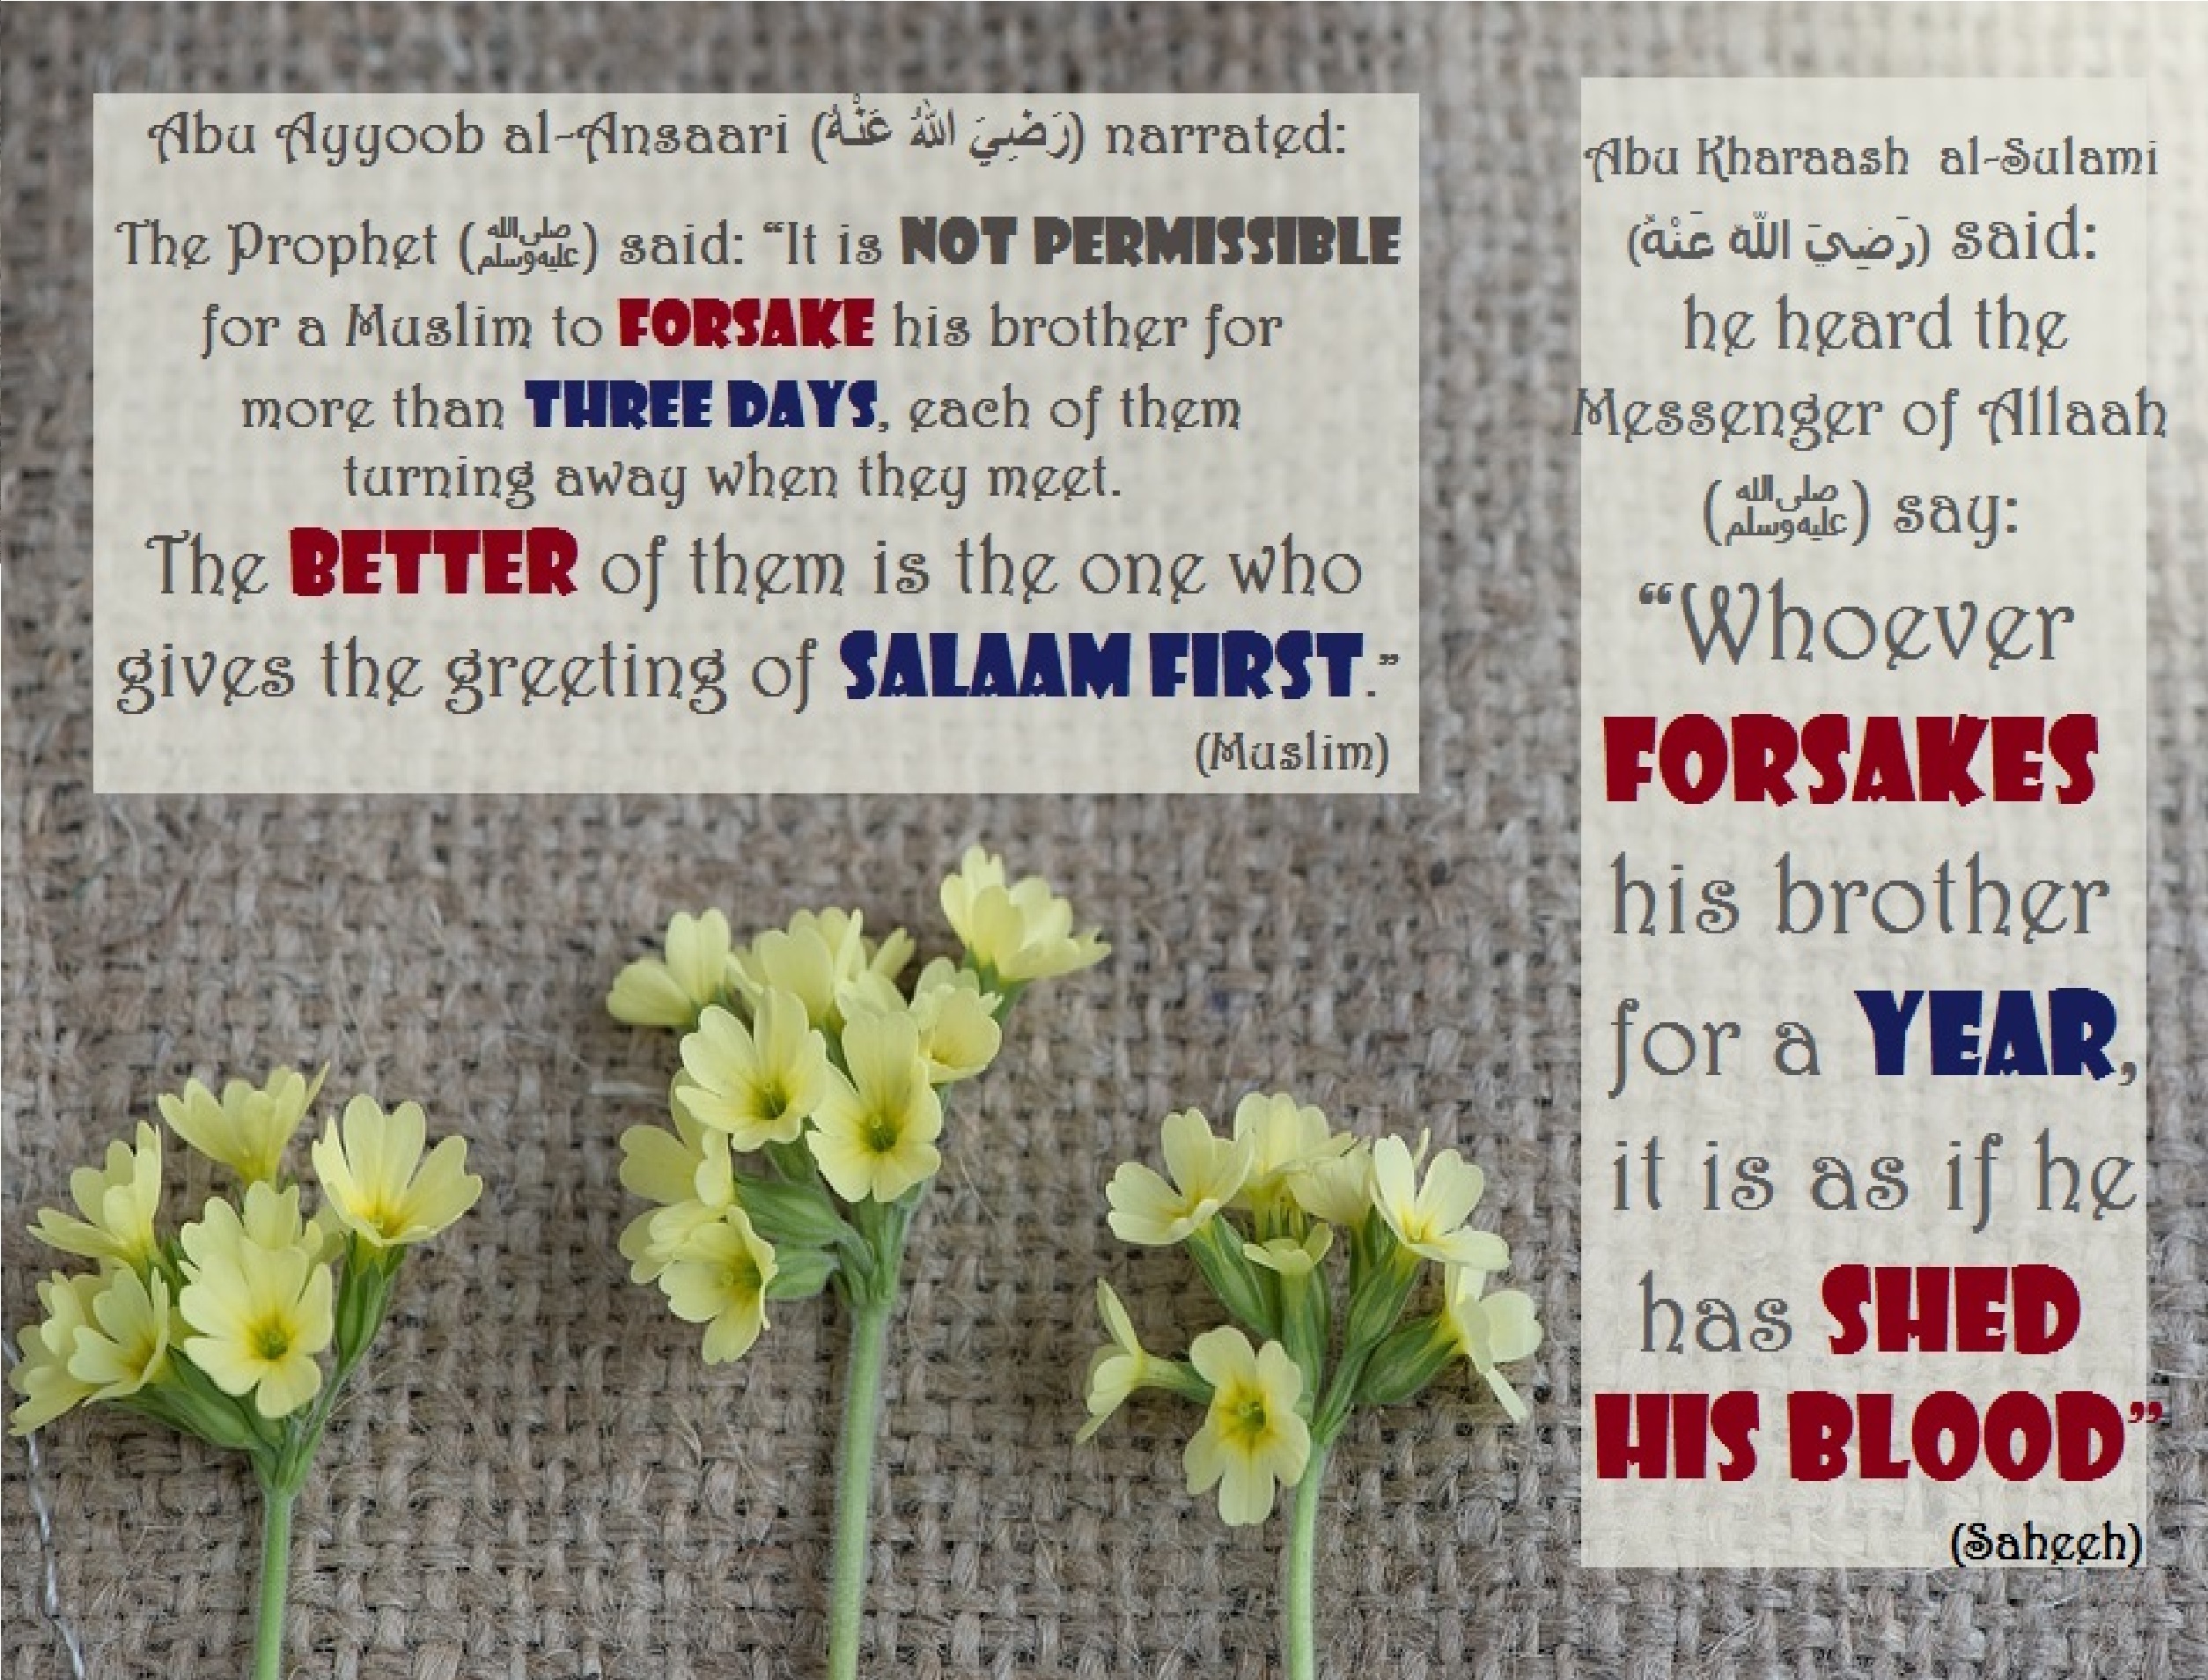 Abu Ayyoob al-Ansaari (رَضِيَ اللهُ عَنْهُ) narrated:
The Prophet (ﷺ) said: “It is NOT PERMISSIBLE
for a Muslim to FORSAKE his brother for
more than THREE DAYS, each of them
turning away when they meet.
The BETTER of them is the one who
gives the greeting of SALAAM FIRST.”
(Muslim)
Abu Kharaash al-Sulami
(رَضِيَ اللّهُ عَنْهُ) said:
he heard the
Messenger of Allaah
(ﷺ) say:
“Whoever
FORSAKES
his brother
for a YEAR,
it is as if he
has SHED
HIS BLOOD”
(Saheeh)